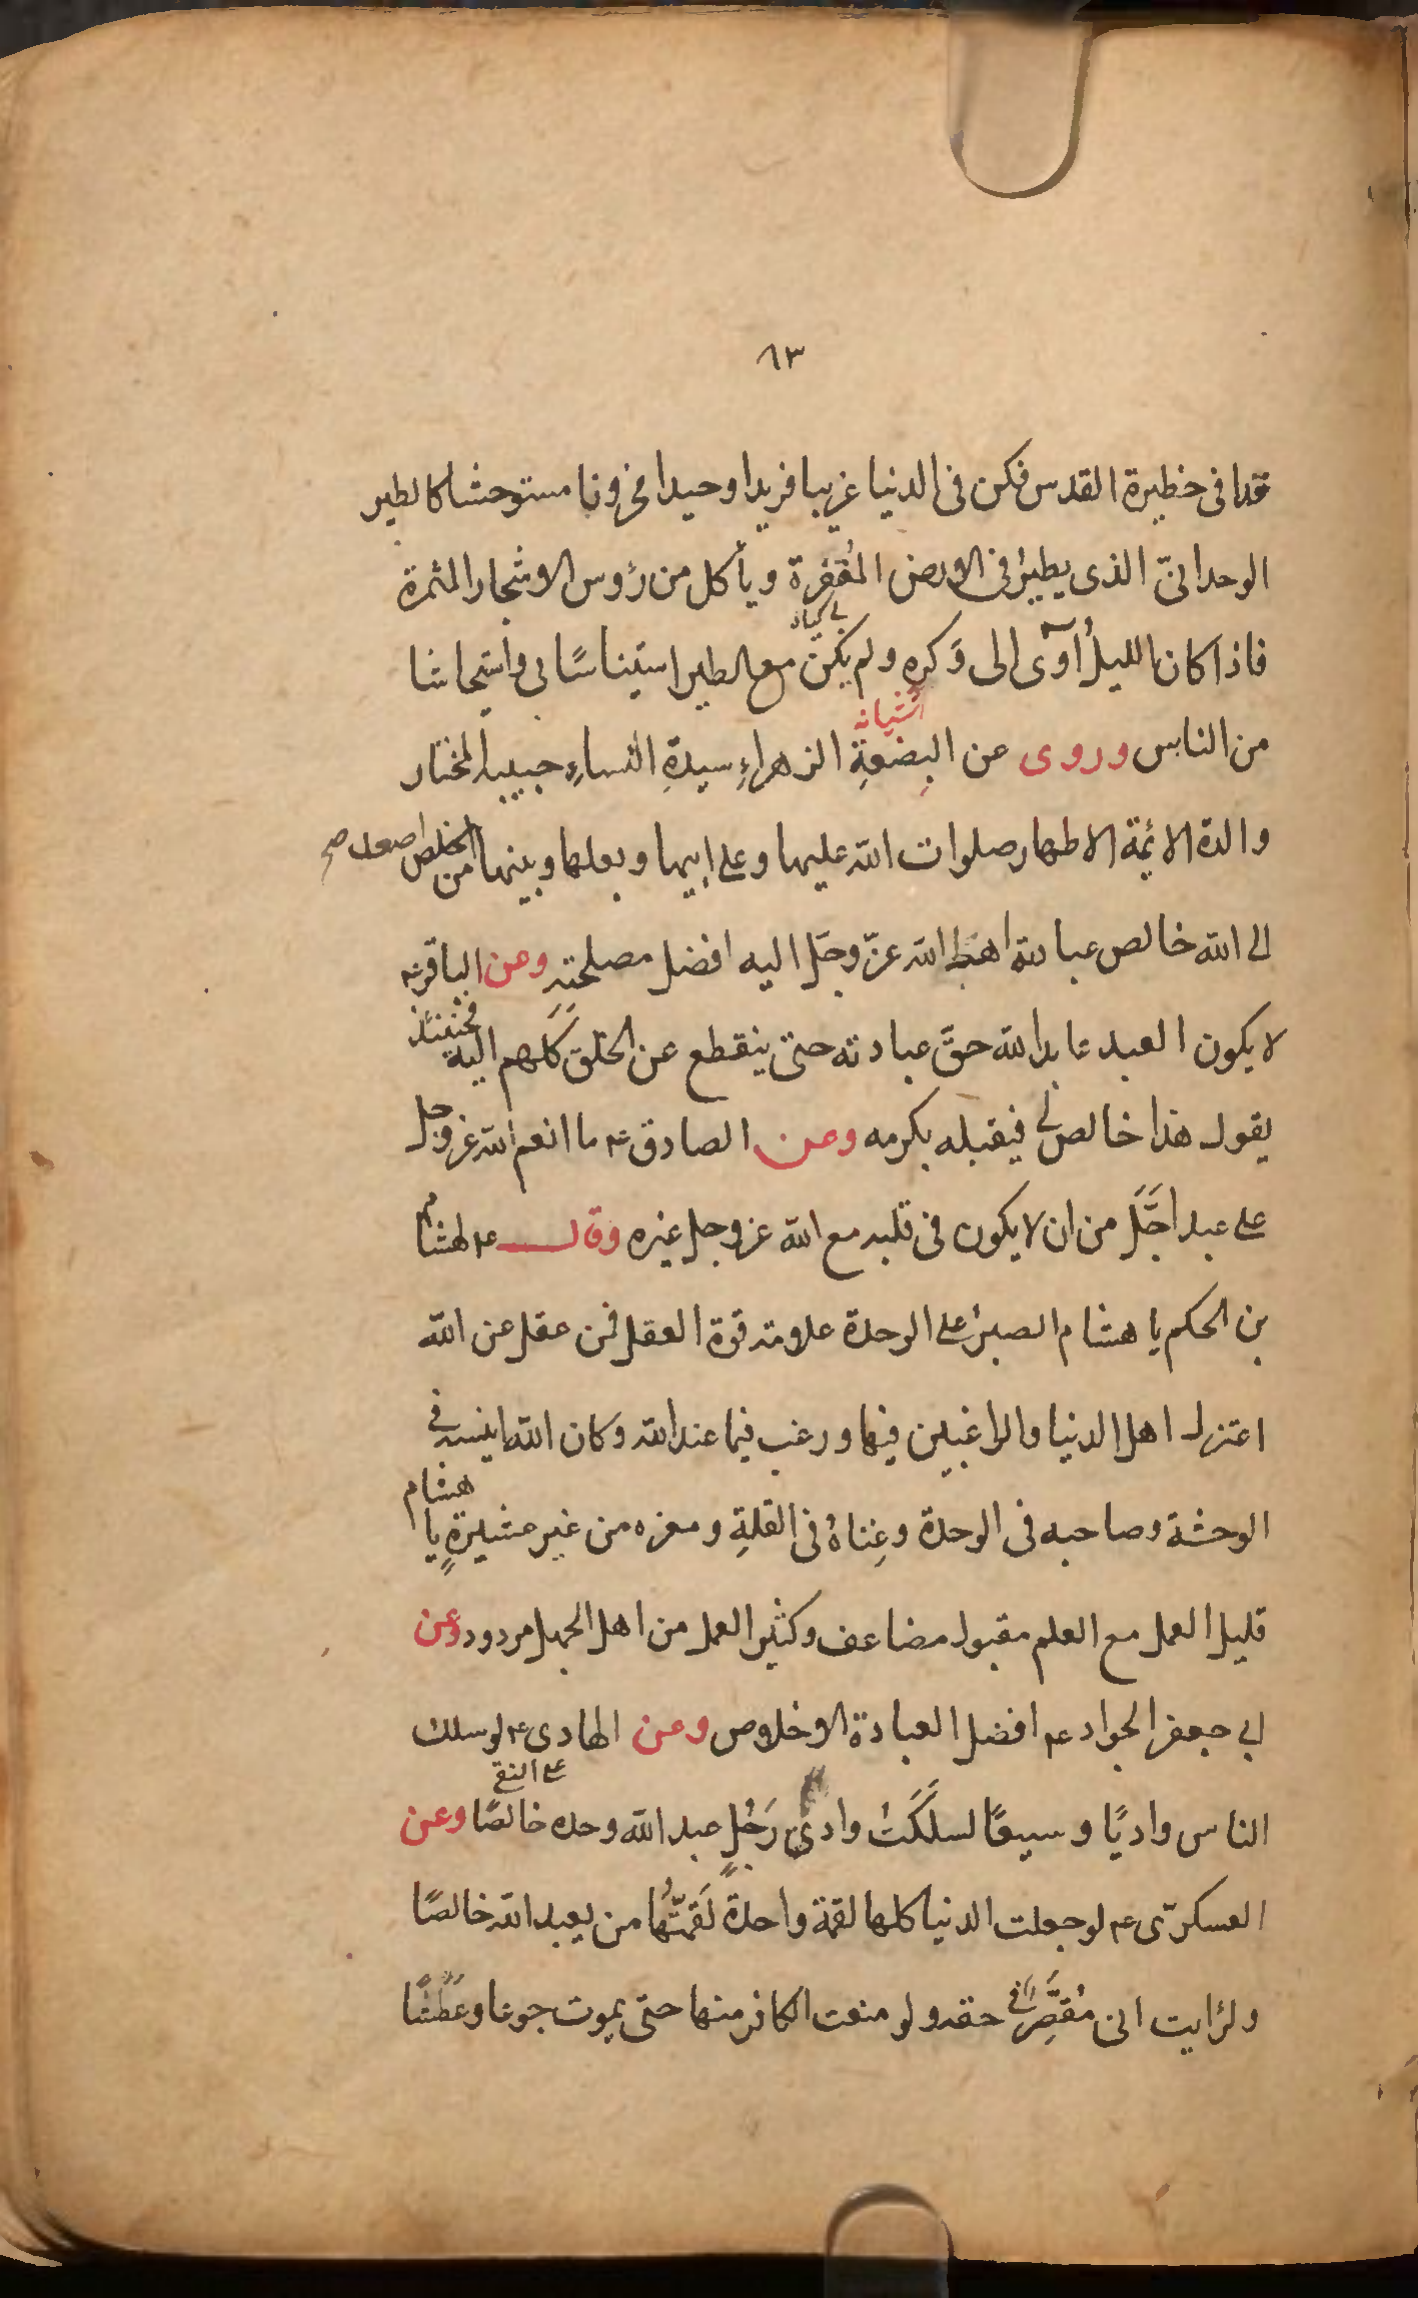 ٦٣
غدا فى خطيرة القدس فكن فى الدنيا غريبا فريدا وحيدا محزونا مستوحشا كالطير
الوحدانىّ الذى يطير فى الارض المُقفِرة ويأكل من رؤس الاشجار المثمرة
فاذا كان الليلُ آوى الى وَكرِهِ ولم يكن مع الطير استيناسًا بى واستيحاشا
آشیانه
من الناس وروى عن البِضعَةِ الزهراءِ سيدةِ النساءِ حبيبة المختار
والدة الائمة الاطهار صلوات الله عليها وعلى ابيها وبعلها وبنيها من اخلص اصعد صح
الى الله خالص عبادته اهبط الله عزّ وجَل اليه افضل مصلحته وعن الباقر ع
لا يكون العبد عابدا لله حقّ عبادته حتى ينقطع عن الخلق كلهم اليه فحينئذ
يقول هذا خالص لى فيقبله بكرمه وعن الصادق ع ما انعم الله عز وجل
على عبد اجَلَّ من ان لا يكون فى قلبه مع الله عز وجل غيره وقال ع لهشام
بن الحكم يا هشام الصبر على الوحدة علامة قوة العقل فمن عقل عن الله
اعتزل اهل الدنيا والراغبين فيها ورغب فيما عند الله وكان الله انيسه فى
الوحشة وصاحبه فى الوحدة وغِناهُ فى القلةِ ومعزه من غير عشيرةٍ يا هشام
قليل العمل مع العلم مقبول مضاعف وكثير العمل من اهل الجهل مردود وعن
ابى جعفر الجواد ع افضل العبادة الاخلاص وعن الهادى ع لو سلك
على النقى
الناس واديًا وسيعًا لسلَكَتُ وادىَ رَجُلٍ عبد الله وحده خالصًا وعن
العسكرّى ع لو جعلت الدنيا كلها لقمة واحدة لَقمتُها من يعبد الله خالصًا
ولرايت انى مُقصِّر فى حقه ولو منعت الكافر منها حتى يموت جوعا وعَطَشًا